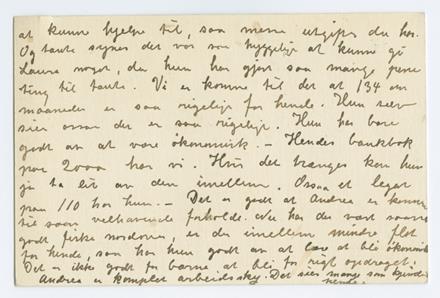 at kunne hjelpe til, saa mene utgifter du har.
Og tante synes det var saa hyggelig at kunne gi
Laura noget, da hun har gjort saa mange pene
ting til tante. Vi er komne til det at 134 om
maaneden er saa rigelig for hende. Hun selv
sier ogsaa det er saa rigelig. Hun har bare
godt av at være økonomisk. – Hendes bankbok
paa 2000 har vi. Hvis det trænges kan hun
jo ta lit av den imellem. Ogsaa et legat
paa 110 har hun. – Det er godt at Andrea er kommet
til saan velhavende forholde. Nu har det vært saare
godt, er du imellem mindre flot
for hende, saa har hun godt av at lære at bli økonomisk
Det er ikke godt for barne at bli for rigt opdraget.
Andrea er komplet arbeidssky. Det sier mange som kjender
hende.